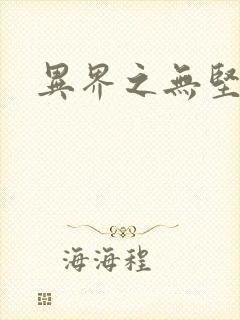 異界之無堅
海海程